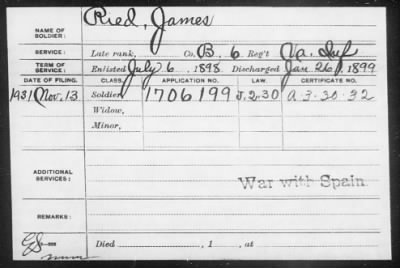 NAME OF SOLDIER: Ried, James
SERVICE: Late rank, Co. B. 6 Reg't Va. Inf
TERM OF SERVICE: Enlisted July 6, 1898 Discharged Jan 26, 1899
DATE OF FILING. CLASS. APPLICATION NO. LAW. CERTIFICATE NO.
1931 Nov. 13 Soldier, 1706199 J.2.30 A-3-30-32
Widow,
Minor,
ADDITIONAL SERVICES: War with Spain.
REMARKS:
Died , 1 , at